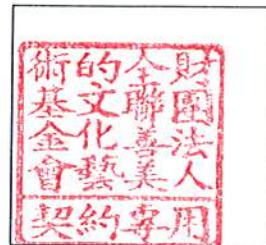 財團法人
全聯善美
的文化藝
術基金會
契約專用